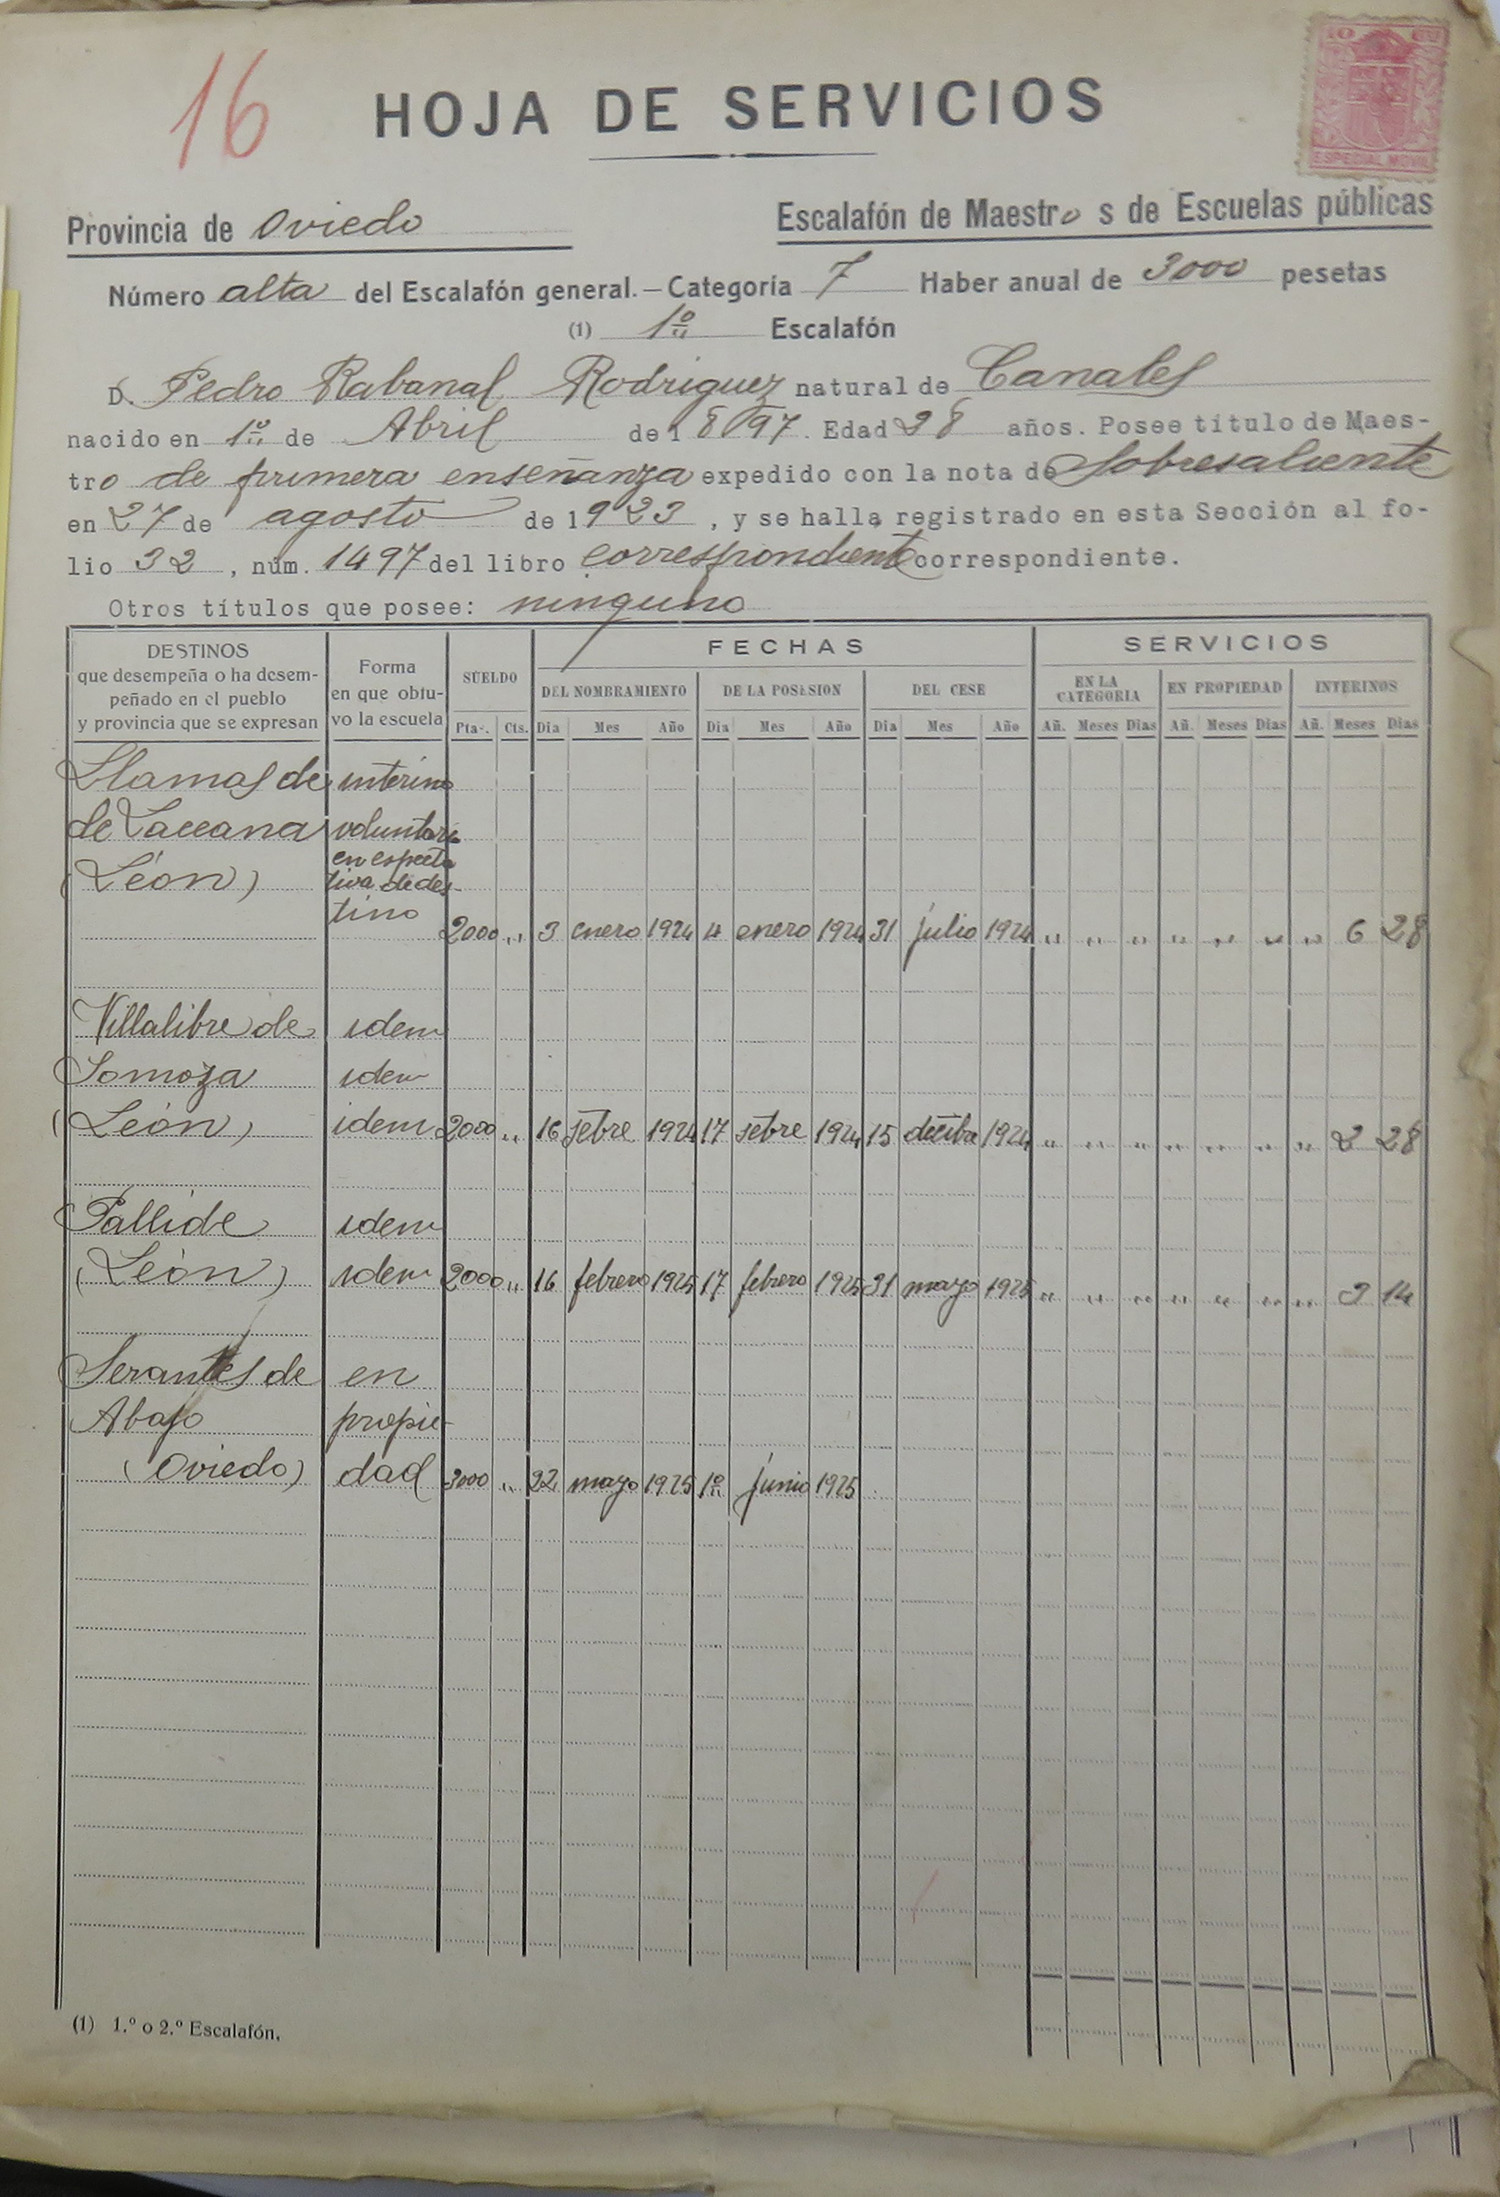 16
HOJA DE SERVICIOS
10 C
ESPECIAL MOVIL
Provincia de Oviedo
Escalafón de Maestros de Escuelas públicas
Número alta del Escalafón general.—Categoría 7 Haber anual de 3000 pesetas
(1) 1º Escalafón
D. Pedro Rabanal Rodriguez natural de Canales
nacido en 1º de Abril de 1897. Edad 28 años. Posee título de Maes-
tro de primera enseñanza expedido con la nota de Sobresaliente
en 27 de agosto de 1923, y se halla registrado en esta Sección al fo-
lio 32, núm. 1497 del libro correspondiente correspondiente.
Otros títulos que posee: ninguno
DESTINOS que desempeña o ha desem- peñado en el pueblo y provincia que se expresan
Forma en que obtu- vo la escuela
SUELDO
FECHAS
SERVICIOS
DEL NOMBRAMIENTO DE LA POSESION DEL CESE EN LA CATEGORIA EN PROPIEDAD INTERINOS
Ptas. Cts. Dia Mes Año Dia Mes Año Dia Mes Año Añ. Meses Dias Añ. Meses Dias Añ. Meses Dias
Llamas de interino
de Laceana voluntario
en especta
(León) tiva de des-
tino
2000 " 3 enero 1924 4 enero 1924 31 julio 1924 " " " " " " " 6 28
Villalibre de idem
Somoza idem
(León) idem 2000 " 16 sebre 1924 17 sebre 1924 15 dicibe 1924 " " " " " " " 2 28
Pallide idem
(León) idem 2000 " 16 febrero 1925 17 febrero 1925 31 mayo 1925 " " " " " " " 3 14
Serantes de en
Abajo propie-
(Oviedo) dad 3000 " 22 mayo 1925 1º junio 1925
(1) 1.º o 2.º Escalafón.